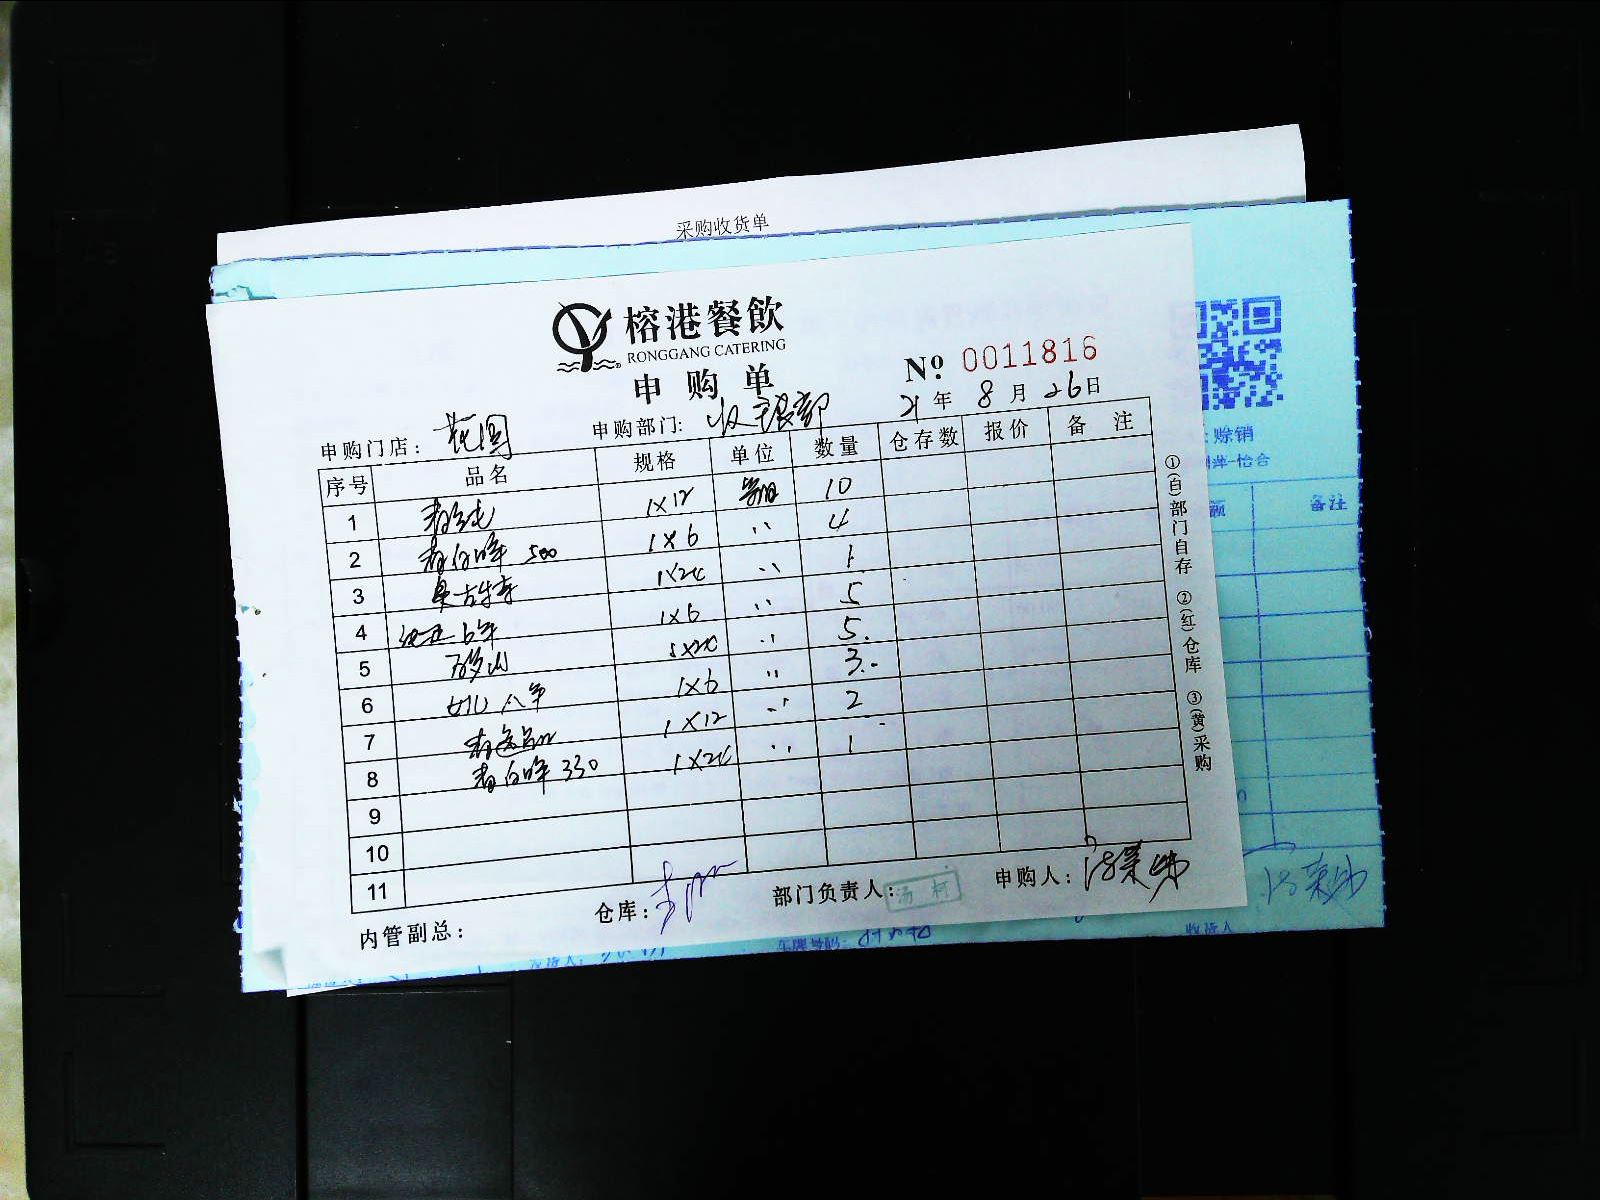 采购收货单
榕港餐飲
RONGGANG CATERING
申购单
№ 0011816
申购门店： 花园 申购部门: 收银部 21年 8月 26日
序号 品名 规格 单位 数量 仓存数 报价 备注
1 1×12 箱 10
2 青白啤 500 1×6 〃 4
3 1×24 〃 1
4 6年 1×6 〃 5
5 1×24 〃 5
6 女儿 八年 1×6 〃 3
7 1×12 〃 2
8 青白啤 330 1×24 〃 1
9
10
11
①(白)部门自存 ②(红)仓库 ③(黄)采购
内管副总： 仓库： 部门负责人： 汤柯 申购人：
赊销
备注
收货人